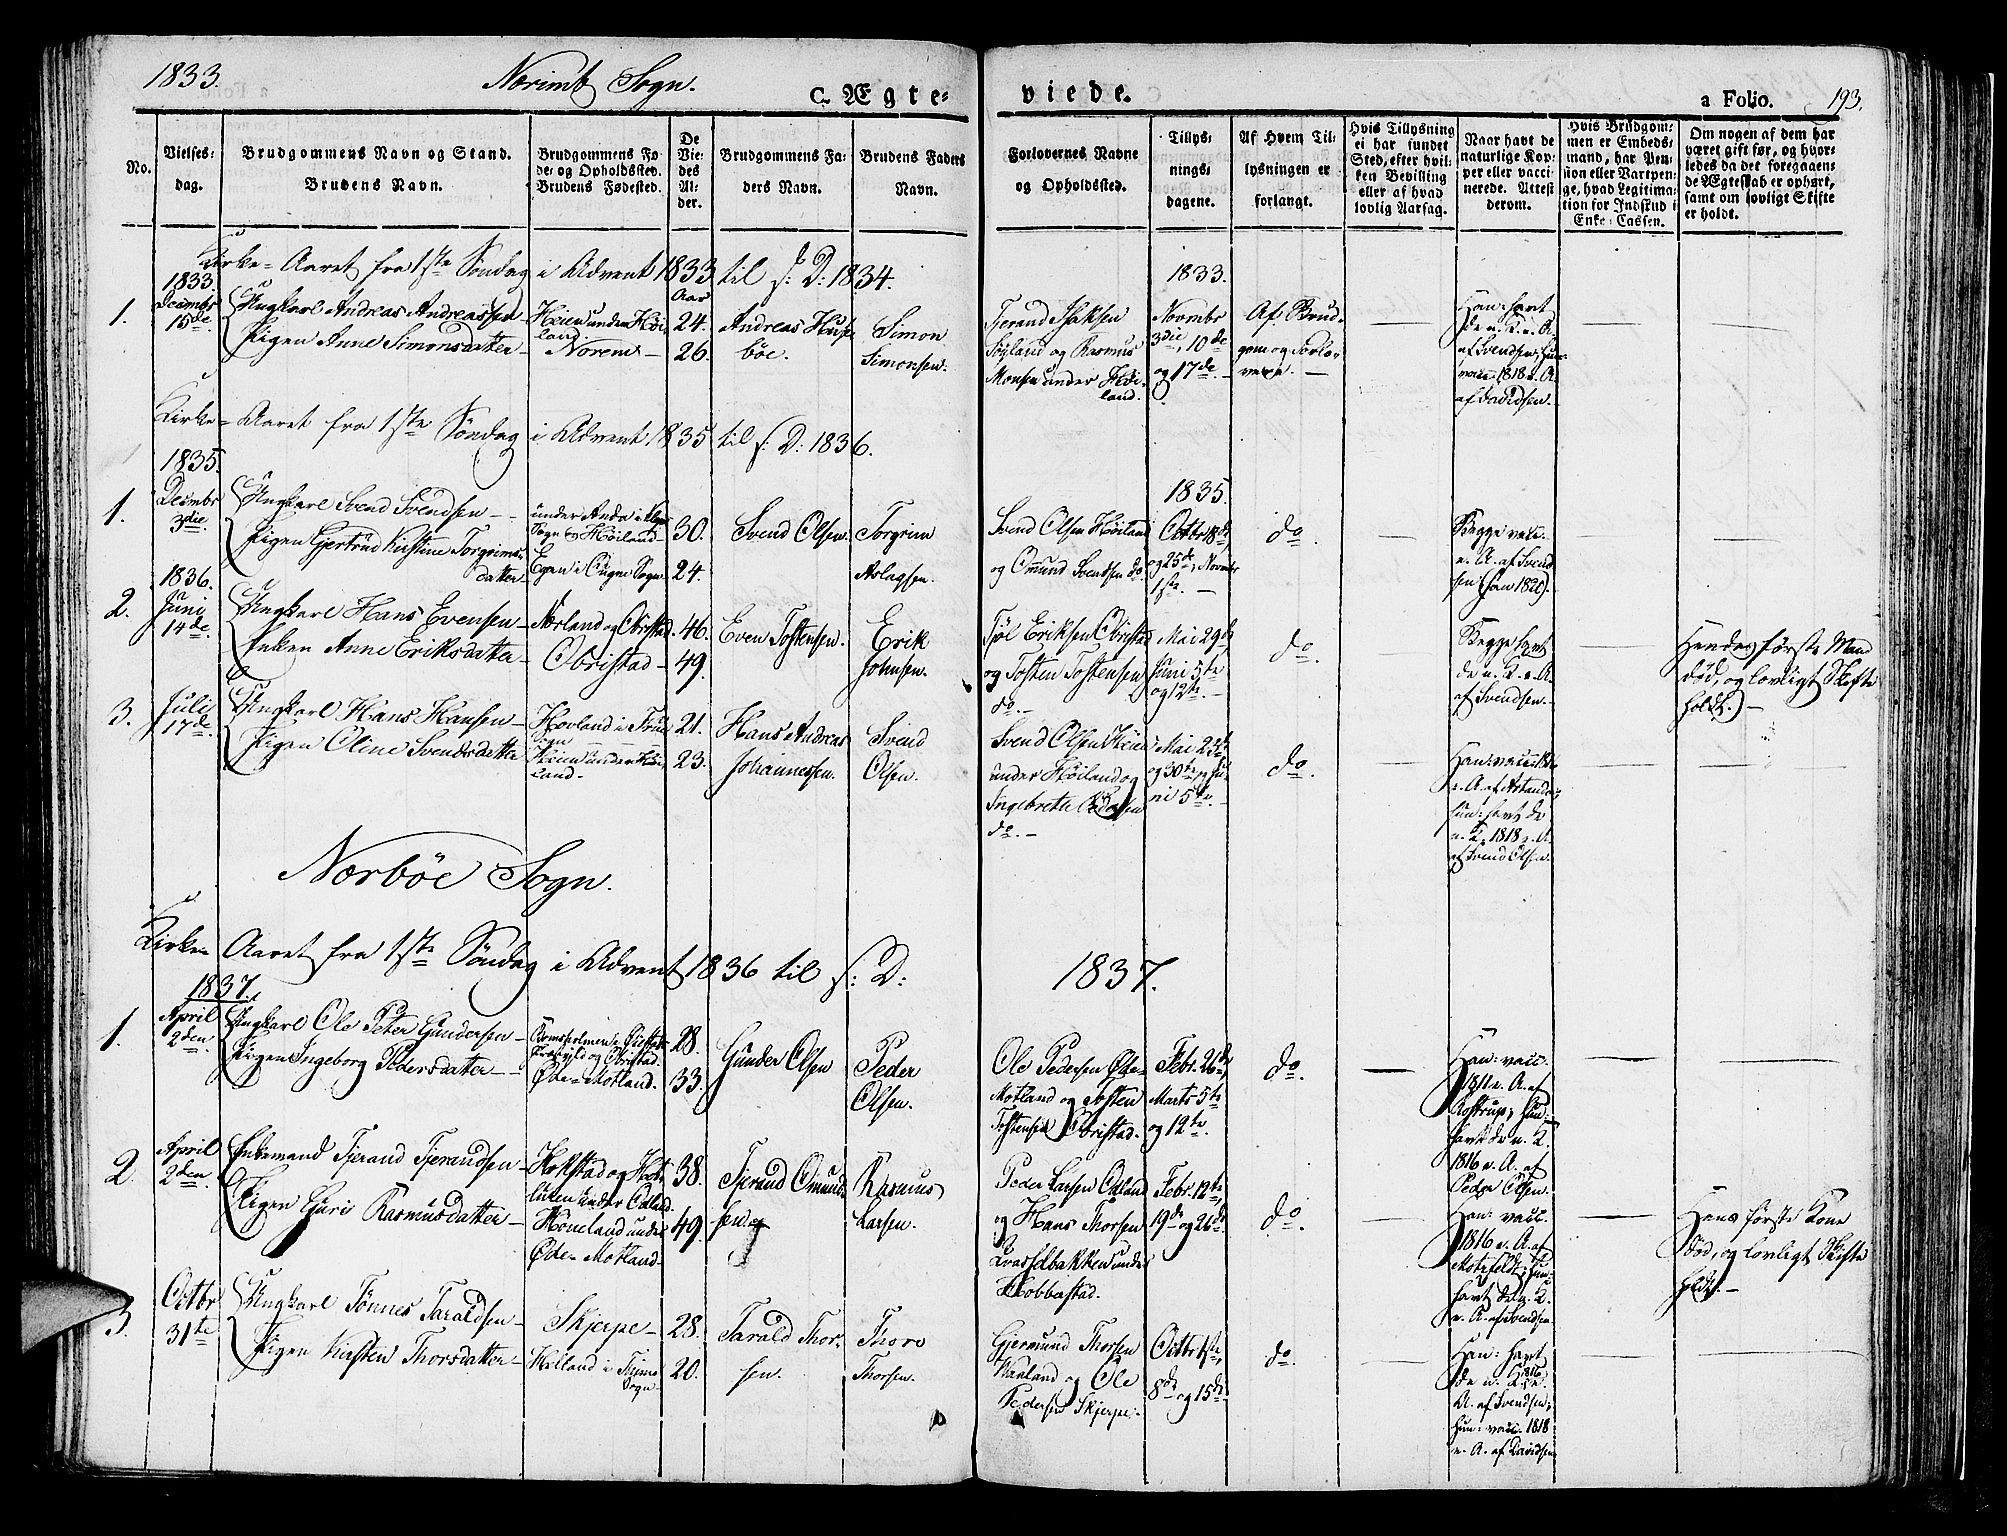 1833. Nærimb Sogn. C. Ægte=
viede. a Folio. 193.
No.
Vielses-
dag.
Brudgommens Navn og Stand.
Brudens Navn.
Brudgommens Fø-
de- og Opholdssted.
Brudens Fødested.
De
Vie-
des
Al-
der.
Brudgommens Fa-
ders Navn.
Brudens Faders
Navn.
Forlovernes Navne
og Opholdssted.
Tillys-
nings-
dagene.
Af Hvem Til-
lysningen er
forlangt.
Hvis Tillysning
ei har fundet
Sted, efter hvil-
ken Bevilling
eller af hvad
lovlig Aarsag.
Naar havt de
naturlige Kop-
per eller vacci-
nerede. Attest
derom.
Hvis Brudgom-
men er Embeds-
mand, har Pen-
sion eller Vartpen-
ge, hvad Legitima-
tion for Indskud i
Enke-Cassen.
Om nogen af dem har
været gift før, og hvor-
ledes da det foregaaen-
de Ægteskab er ophørt,
samt om lovligt Skifte
er holdt.
Kirke-Aaret fra 1ste Søndag i Advent 1833 til s: D: 1834.
1.
1833.
Decmbr
15de
Ungkarl Andreas Andreassen
Pigen Anne Simonsdatter
Høien under Høi-
land.
Norem
Aar
24.
26.
Andreas Huse-
bøe.
Simon
Simonsen.
Tjerand Isaksen
Søiland og Rasmus
Monsen under Høi-
land.
1833.
Novmbr
3die, 10de
og 17de
Af Brud-
gom og Forlo-
verne.
Han: havt
de n. K. e. A.
af Svendsen; hun
vacc. 1818 e. A.
af Davidsen.
Kirke-Aaret fra 1ste Søndag i Advent 1835 til s: D: 1836.
1.
1835.
Decmbr
3die
Ungkarl Svend Svendsen
Pigen Gjertrud Kirstine Torgrims-
datter
under Anda i Klep
Sogn og Høiland
Egen i Ougne Sogn
30.
24.
Svend Olsen
Torgrim
Aslagsen.
Svend Olsen Høiland
og Omund Svendsen do
1835.
Octbr 18de,
og 25de, Novmbr
1ste
do
Begge vacc.
e. A. af Svend-
sen (han 1820).
2.
1836.
Juni
14de
Ungkarl Hans Evensen
Enken Anne Eriksdatter
Nærland og Obrestad
Obristad
46.
49.
Even Tostensen.
Erik
Johnsen.
Tjøl Eriksen Obristad
og Tosten Tostensen
do
Mai 29de,
Juni 5te
og 12te
do.
Begge havt
de n. K. e. A.
af Svendsen.
Hendes første Mand
død, og lovligt Skifte
holdt.
3.
Juli
17de
Ungkarl Hans Hansen
Pigen Oline Svendsdatter
Hovland i Frue
Sogn
Høien under Høi-
land
21.
23.
Hans Andreas
Johannessen.
Svend
Olsen.
Svend Olsen Høien
under Høiland og
Ingebreth
do.
Mai 23de
og 30te, og Ju-
ni 5te
do.
Han: vacc.
e. A. af
hun: havt de
n. K. 1818 e. A.
af Svend Olsen.
Nærbøe Sogn.
Kirke-Aaret fra 1ste Søndag i Advent 1836 til s: D: 1837.
1.
1837.
April
2den
Ungkarl Ole Peter Gundersen
Pigen Ingeborg Pedersdatter
og Obristad.
Øde-Motland.
28.
33.
Gunder Olsen
Peder
Olsen.
Ole Pedersen Øde-
Motland og Tosten
Tostensen Obristad.
Febr. 26de,
Marts 5te
og 12te.
do.
Han: vacc.
1811 e. A. af
Aastrup; hun:
havt de n. K.
1816 e. A. af
Peder Olsen.
2.
April
2den
Enkemand Tjerand Tjerandsen
Pigen Guri Rasmusdatter
Hokstad og Hob-
under Odland
Høneland under
Øde-Motland
38.
49.
Tjerand Omund-
sen
Rasmus
Larsen.
Peder Larsen Odland
og Hans Thorsen
Kvasshbakken under
Hobberstad.
Febr. 12te,
19de og 26de
do.
Han: vacc.
1816 e. A. af
Motzfeldt; hun:
havt de n. K.
e. A. af Svendsen
Hans første Kone
død, og lovligt Skifte
holdt.
3.
Octbr
31te
Ungkarl Tønnes Taraldsen
Pigen Kirsten Thorsdatter
Skjerpe
Helland i Thime
Sogn
28.
20.
Tarald Thor-
sen.
Thore
Thorsen.
Gjermund Thorsen
Varland og Ole
Pedersen Skjerpe.
Octbr 1ste,
8de og 15de
do.
Han: havt
de n. K. 1816 e.
A. af Svendsen;
hun: vacc. 1818
e. A. af Davidsen